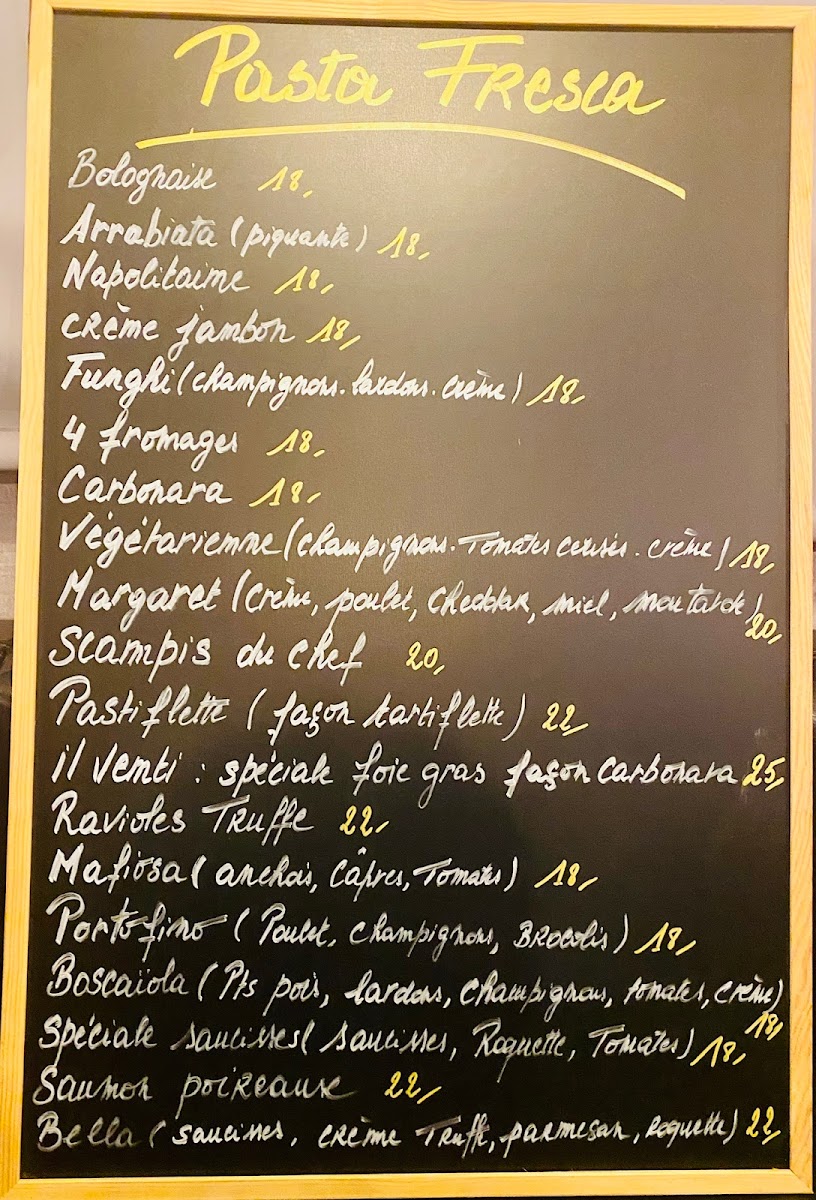 Pasta Fresca
Bolognaise 18,
Arrabiata (piquante) 18,
Napolitaine 18,
crème jambon 18,
Funghi (champignons. lardons. crème) 18,
4 fromages 18,
Carbonara 18,
Végétarienne (champignons. Tomates cerises. crème) 18,
Margaret (Crème, poulet, cheddar, miel, moutarde) 20,
Scampis du chef 20,
Pastiflette (façon tartiflette) 22,
il Venti : spéciale foie gras façon Carbonara 25,
Ravioles Truffe 22,
Mafiosa (anchois, câpres, Tomates) 18,
Portofino (Poulet, champignons, Brocolis) 18,
Boscaïola (Pts pois, lardons, champignons, tomates, crème) 18,
Spéciale saucisses (saucisses, Roquette, Tomates) 18,
Saumon poireaux 22,
Bella (saucisses, crème Truffe, parmesan, roquette) 22,